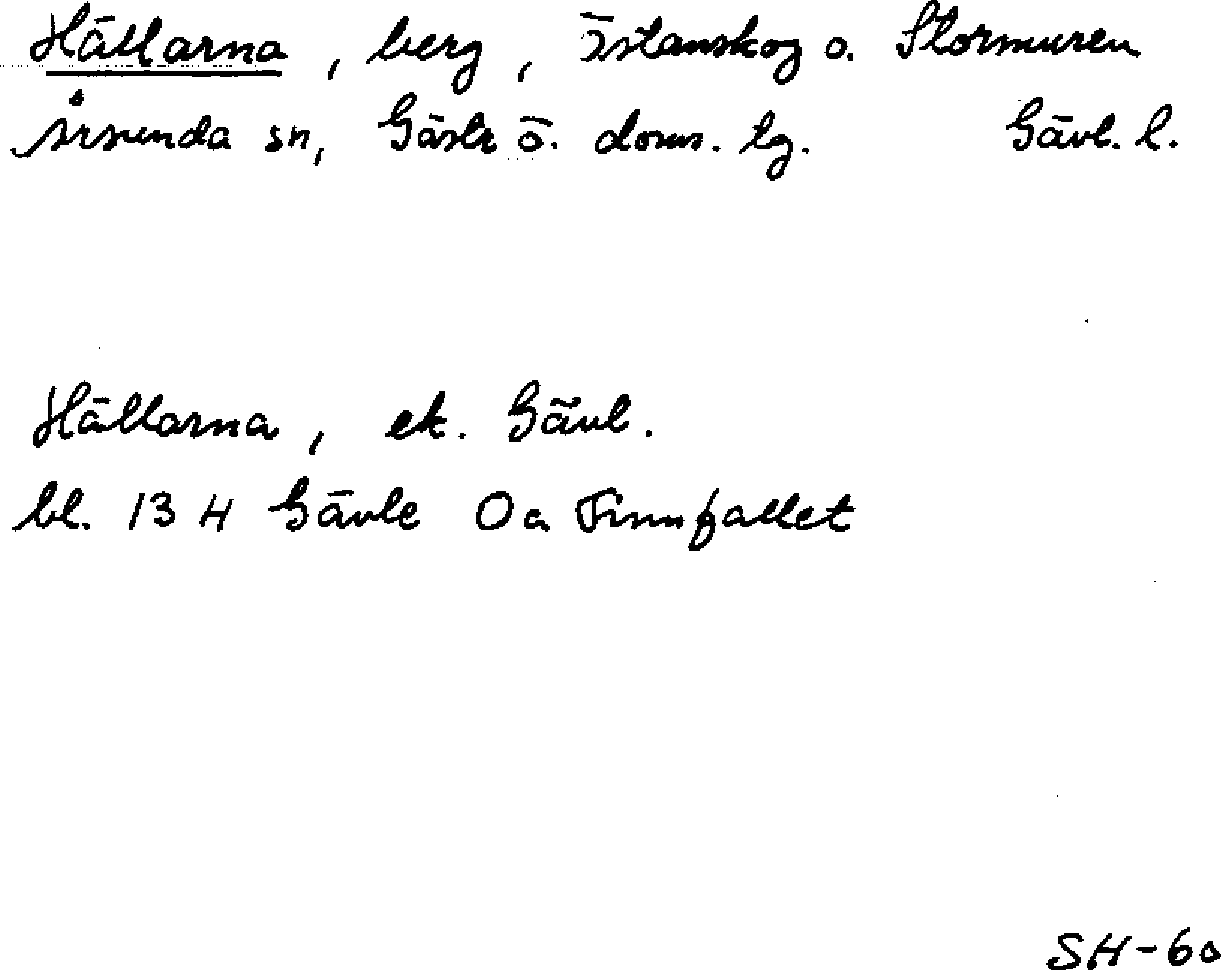 Hällarna, berg, Östanskog o. Stormuren
Årsunda sn, Gästr ö. doms. lg. Gävl. l.
Hällarna, ek. Gävl.
bl. 13 H Gävle 0a Finnfallet
SH-60